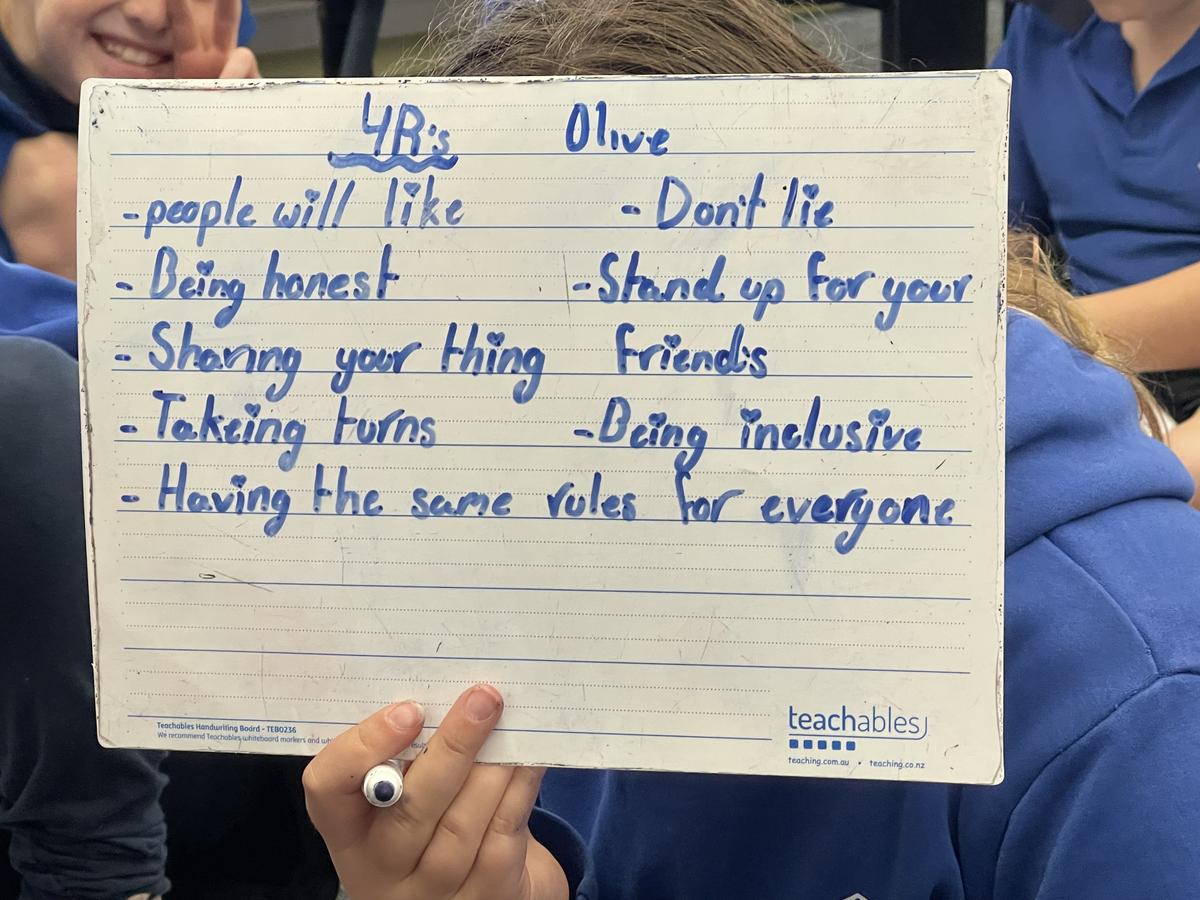 4R's Olive
- people will like - Don't lie
- Being honest - Stand up for your
- Sharing your thing friend's
- Takeing turns - Being inclusive
- Having the same rules for everyone
Teachables Handwriting Board - TEB0236
We recommend Teachables whiteboard markers and
teachables
teaching.com.au • teaching.co.nz